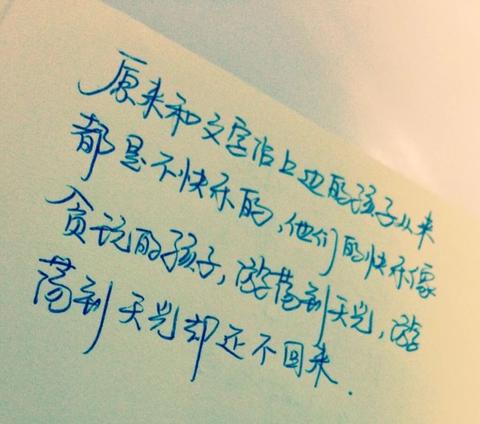 原来和文字沾上边的孩子从来
都是不快乐的，他们的快乐像
贪玩的孩子，游荡到天光，游
荡到天光却还不回来．